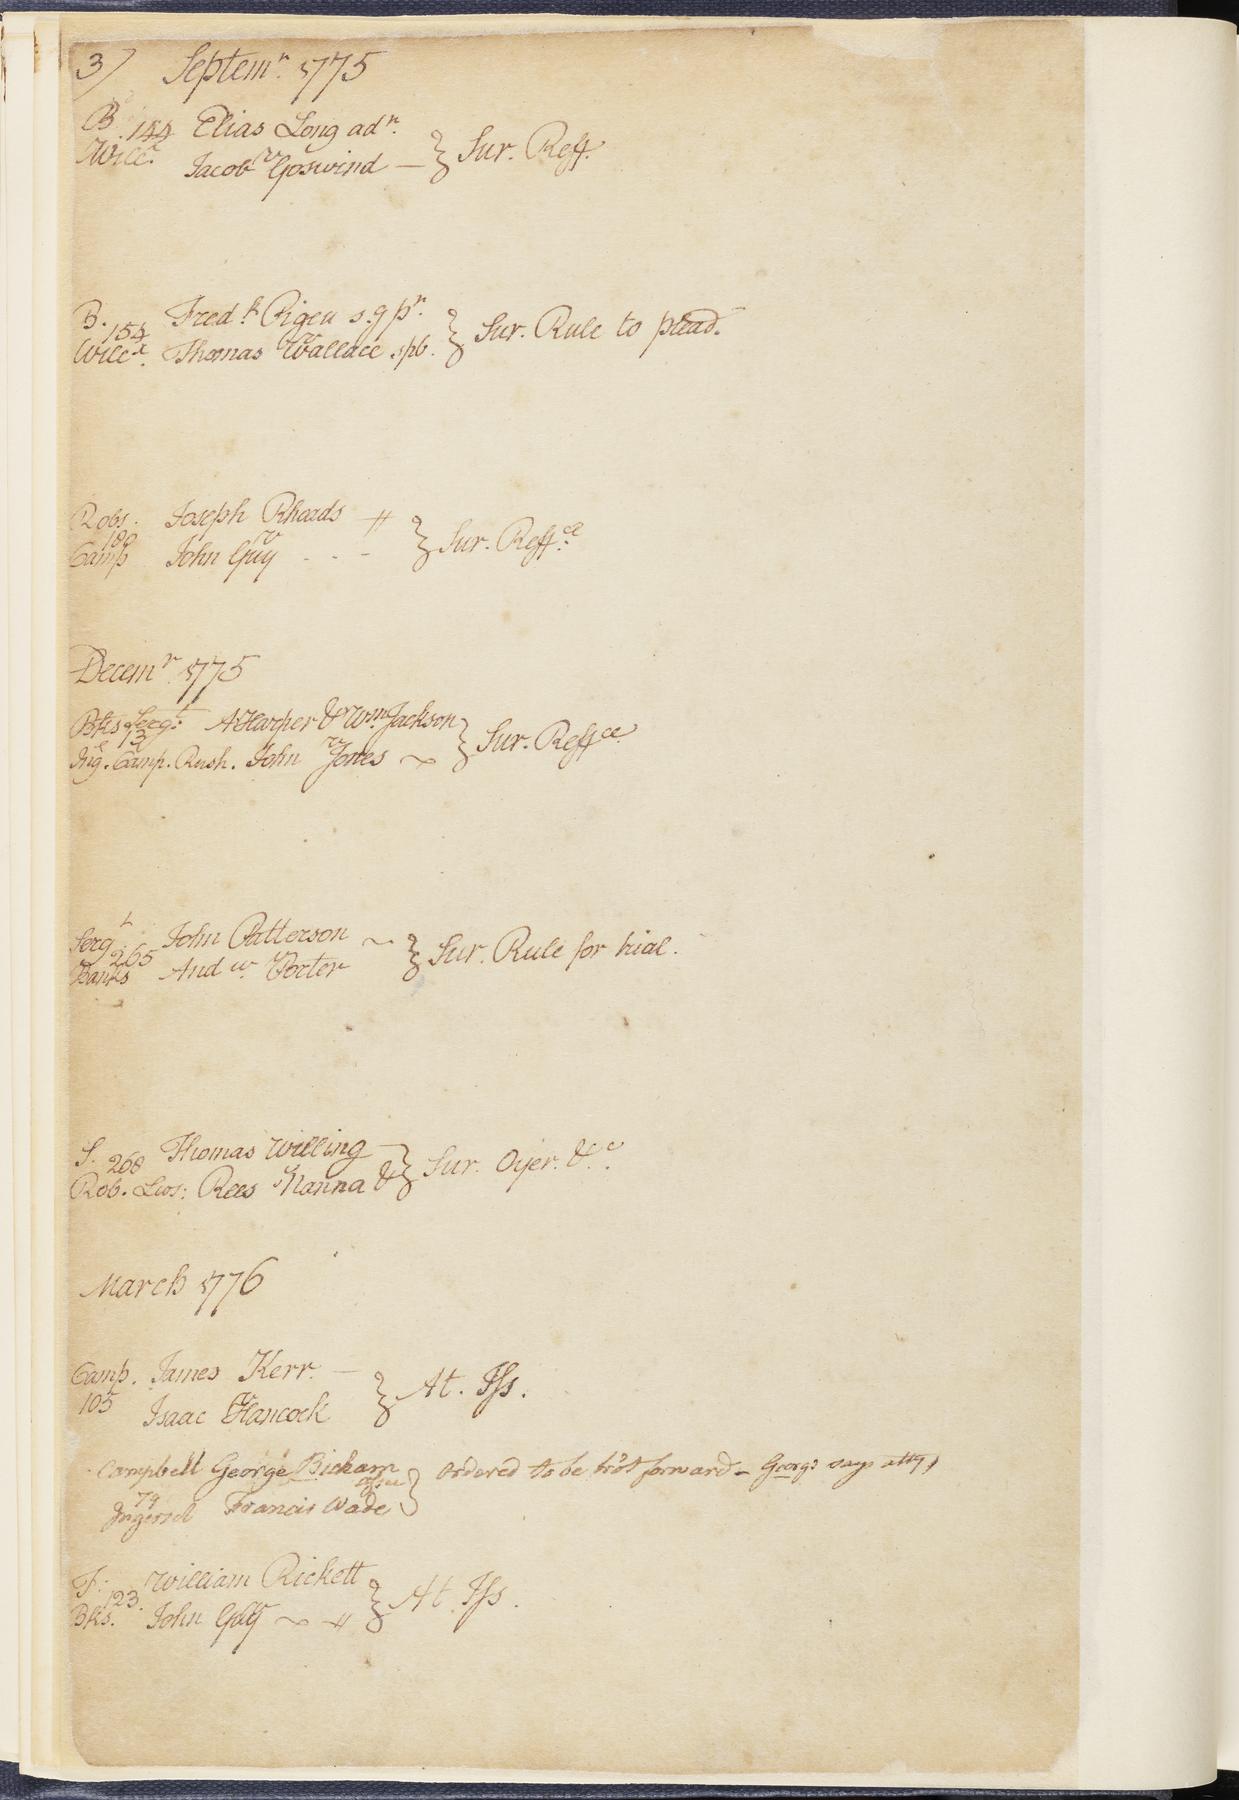 3) Septemr. 1775
B 154 Elias Long adr. } Sur. Reff.
Wilcx. Jacob v Goswind —
B. 154 Fredk. Pigeu s.g pr. } Sur. Rule to plead.
Wilcx. Thomas v Wallace spb.
Robs. 180 Joseph Rhoads } Sur. Reffce.
Camp John v Guy - - -
Decemr. 1775
Bks & Sergt. 13 A Harper & Wm. Jackson } Sur. Reffce.
Ing. Camp. Rush. John v Jones ~
Sergt. 265 John Patterson ~ } Sur. Rule for trial.
Banks Andw. v Porter
S. 268 Thomas Willing } Sur. Oyer. &c.
Rob. Lws: Rees v Nanna &
March 1776
Camp. James Kerr. — } At. Iss.
105 Isaac v Hancock
Campbell George Bickam } Ordered to be bro't forward - George says
79 Ingersol Francis Wade
F: 123. William Rickett } At Iss.
Bks. John v Guy ~